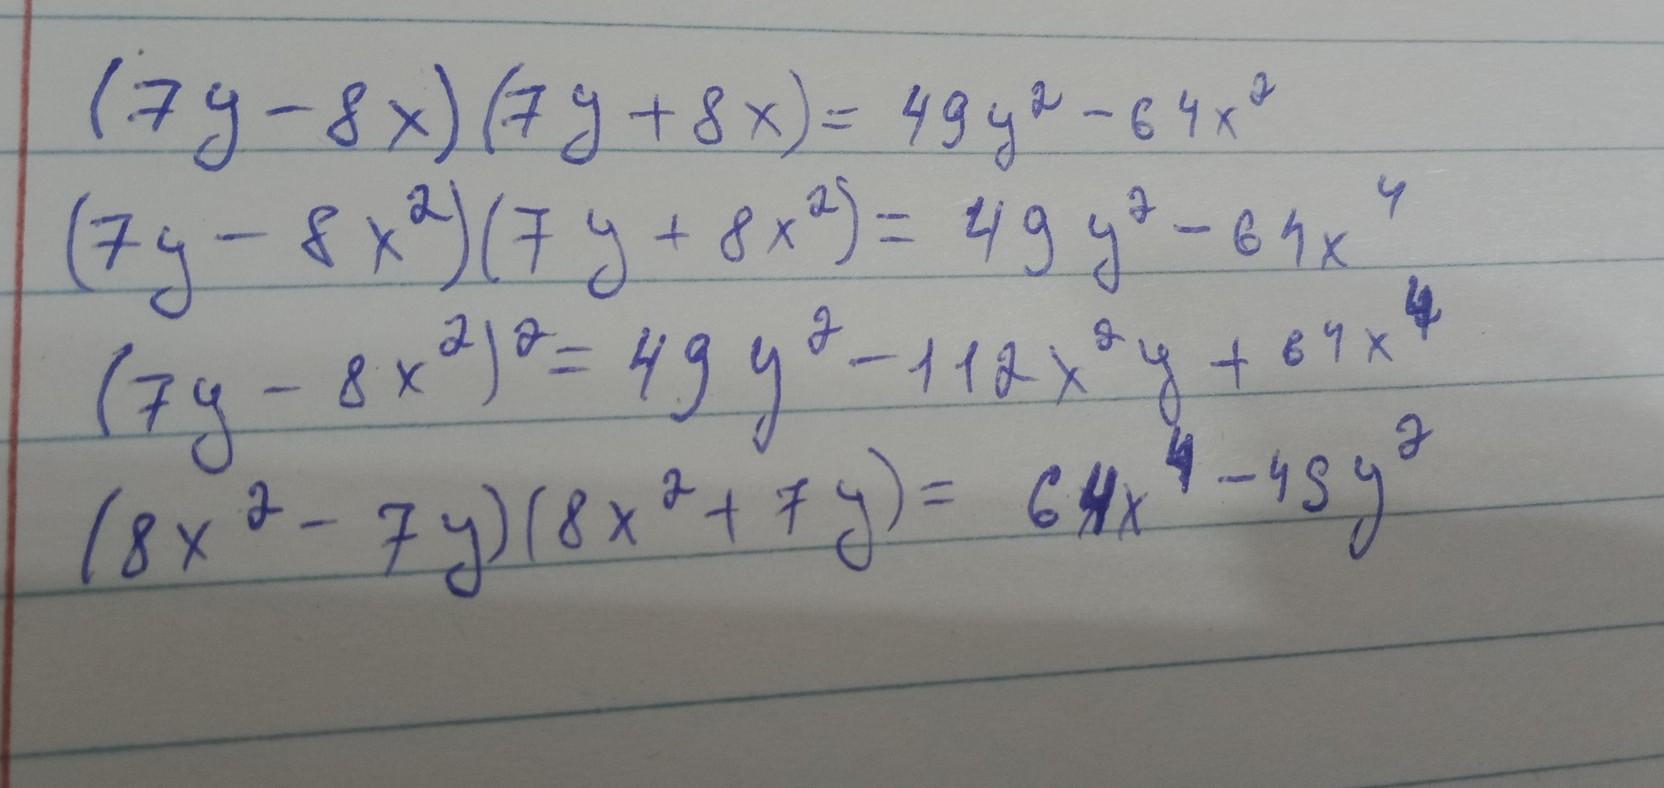 (7y - 8x)(7y + 8x) = 49y² - 64x²
(7y - 8x²)(7y + 8x²) = 49y² - 64x⁴
(7y - 8x²)² = 49y² - 112x²y + 64x⁴
(8x² - 7y)(8x² + 7y) = 64x⁴ - 49y²